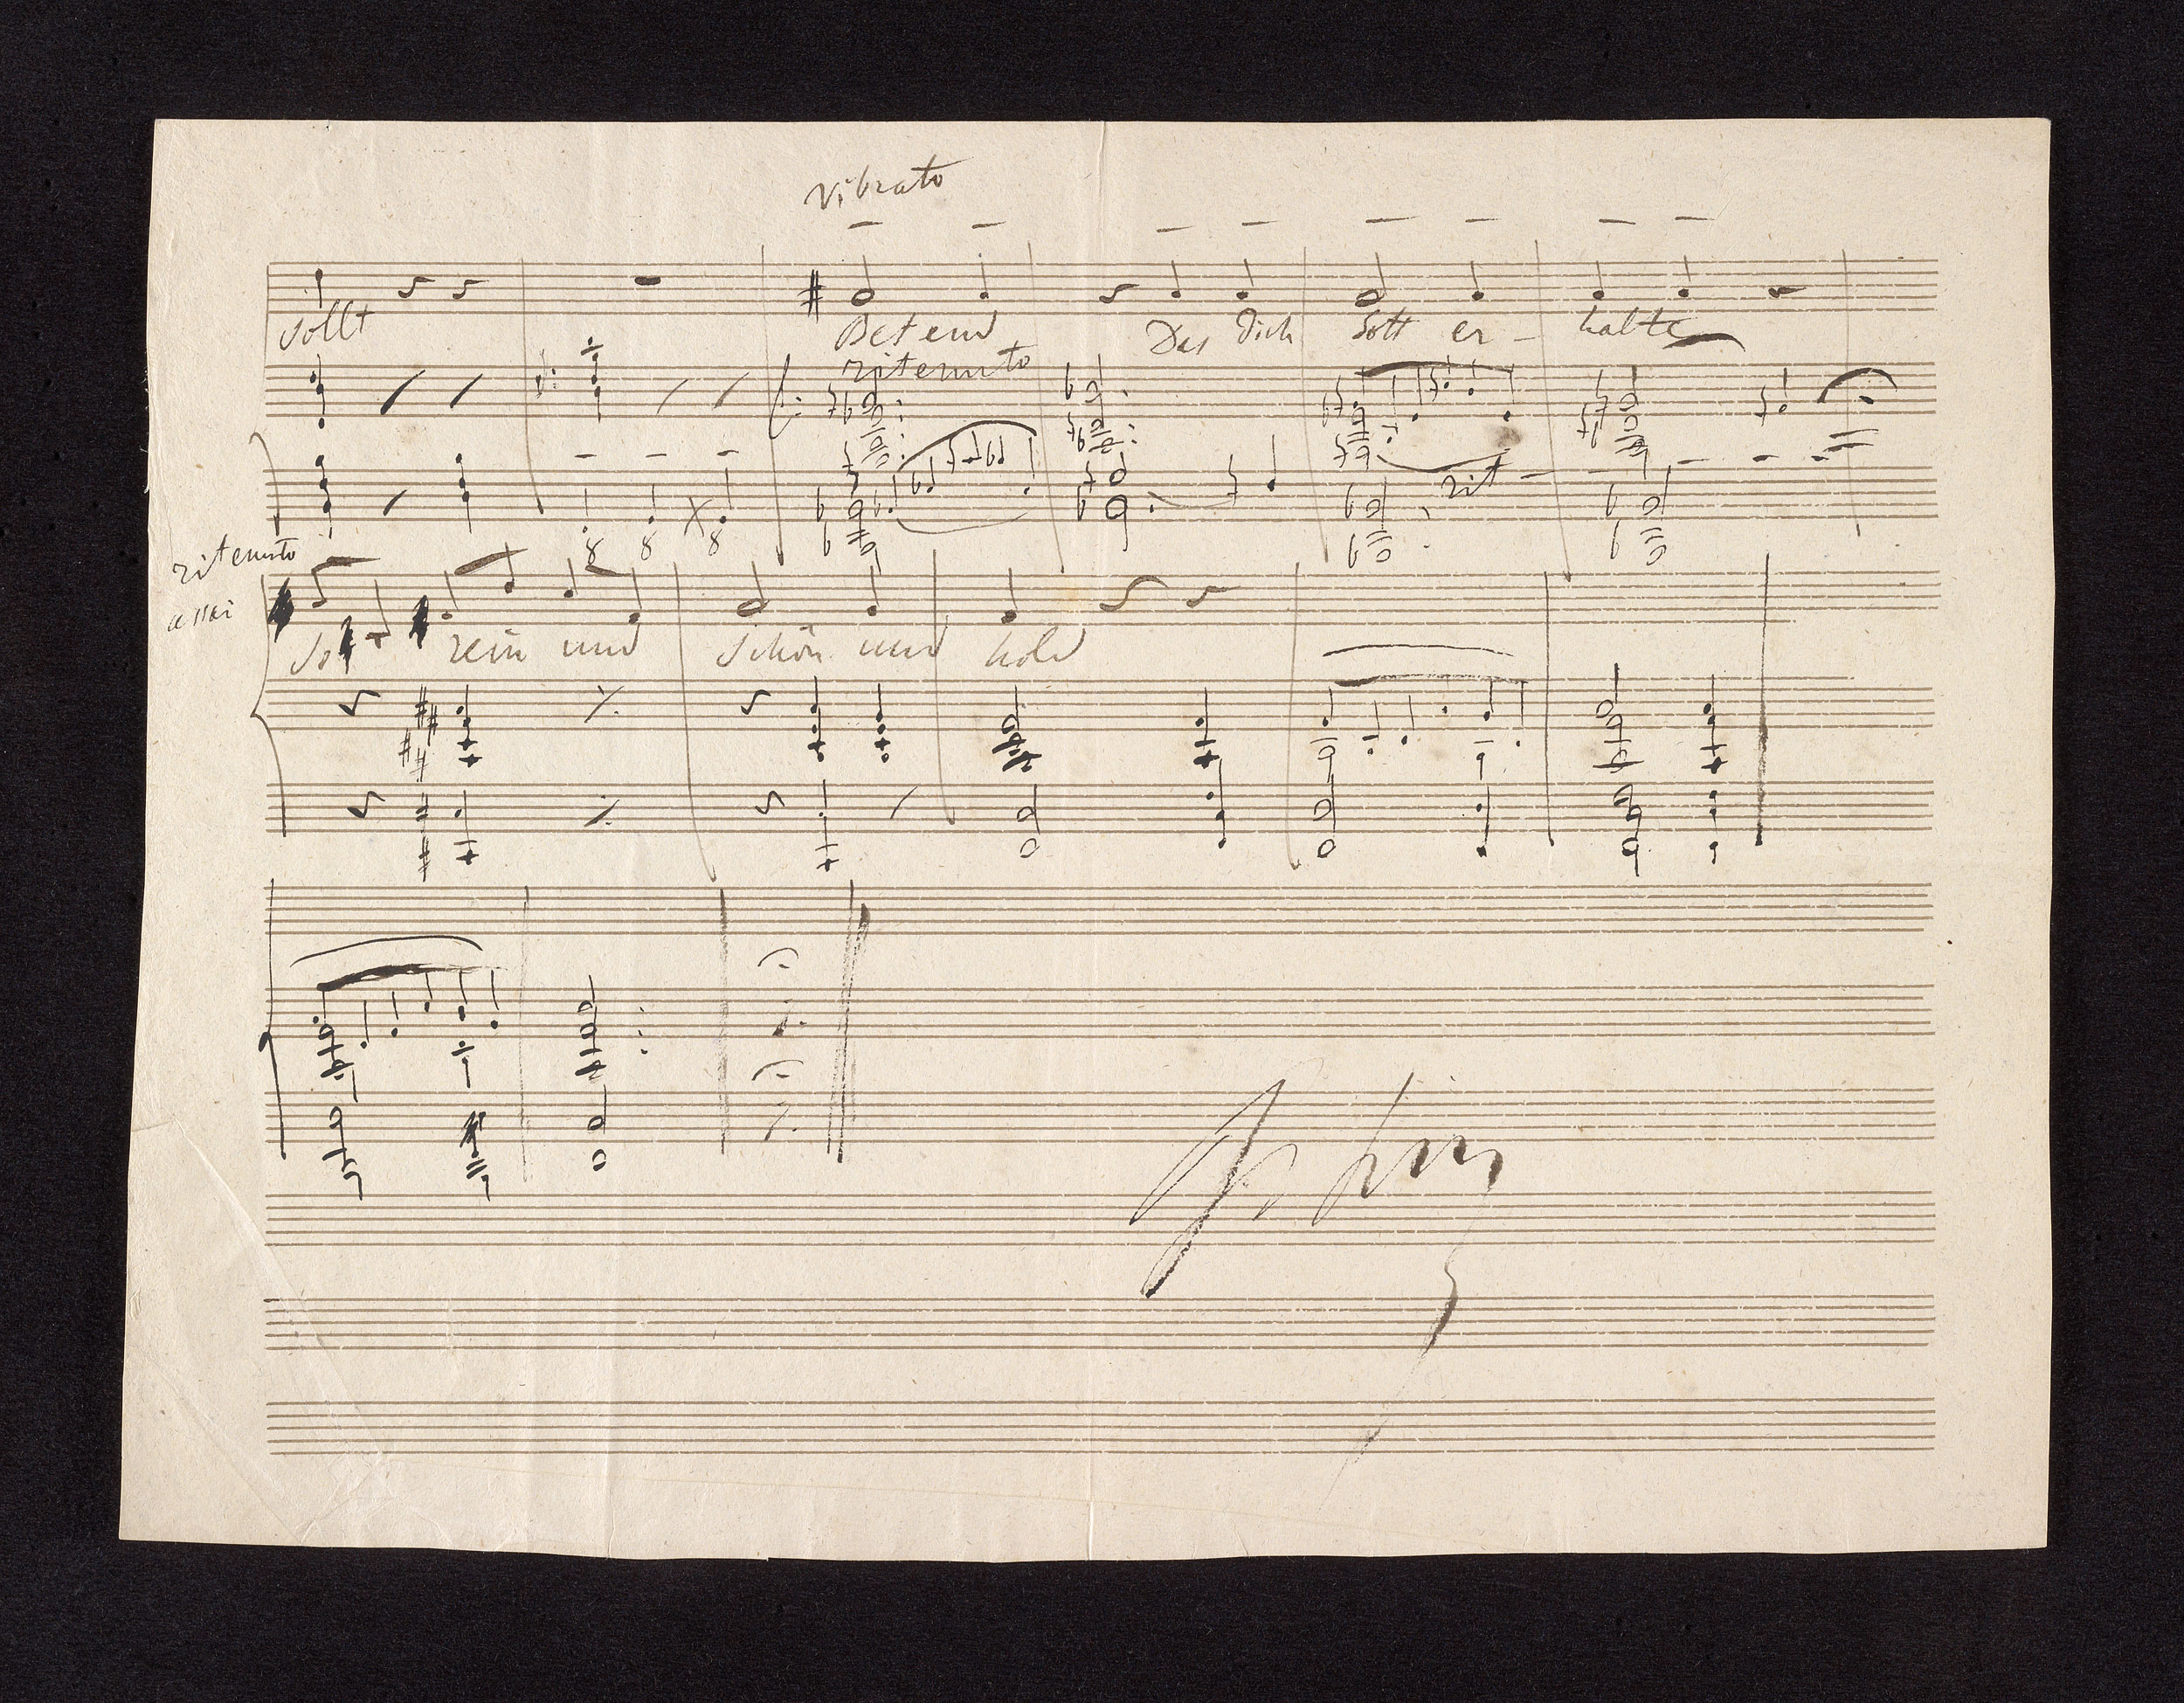 Vibrato
sollt Betend Das dich Gott er - halte
ritenuto
rit - - - - -
ritenuto
assai
So rein und schön und hold